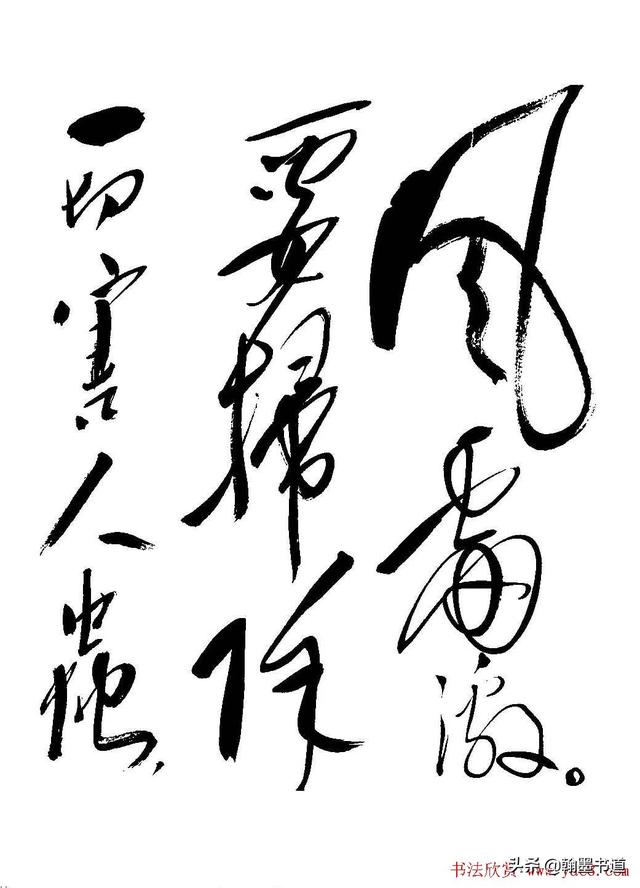 风雷激。
要掃除
一切害人蟲,
头条 @翰墨书道
书法欣赏